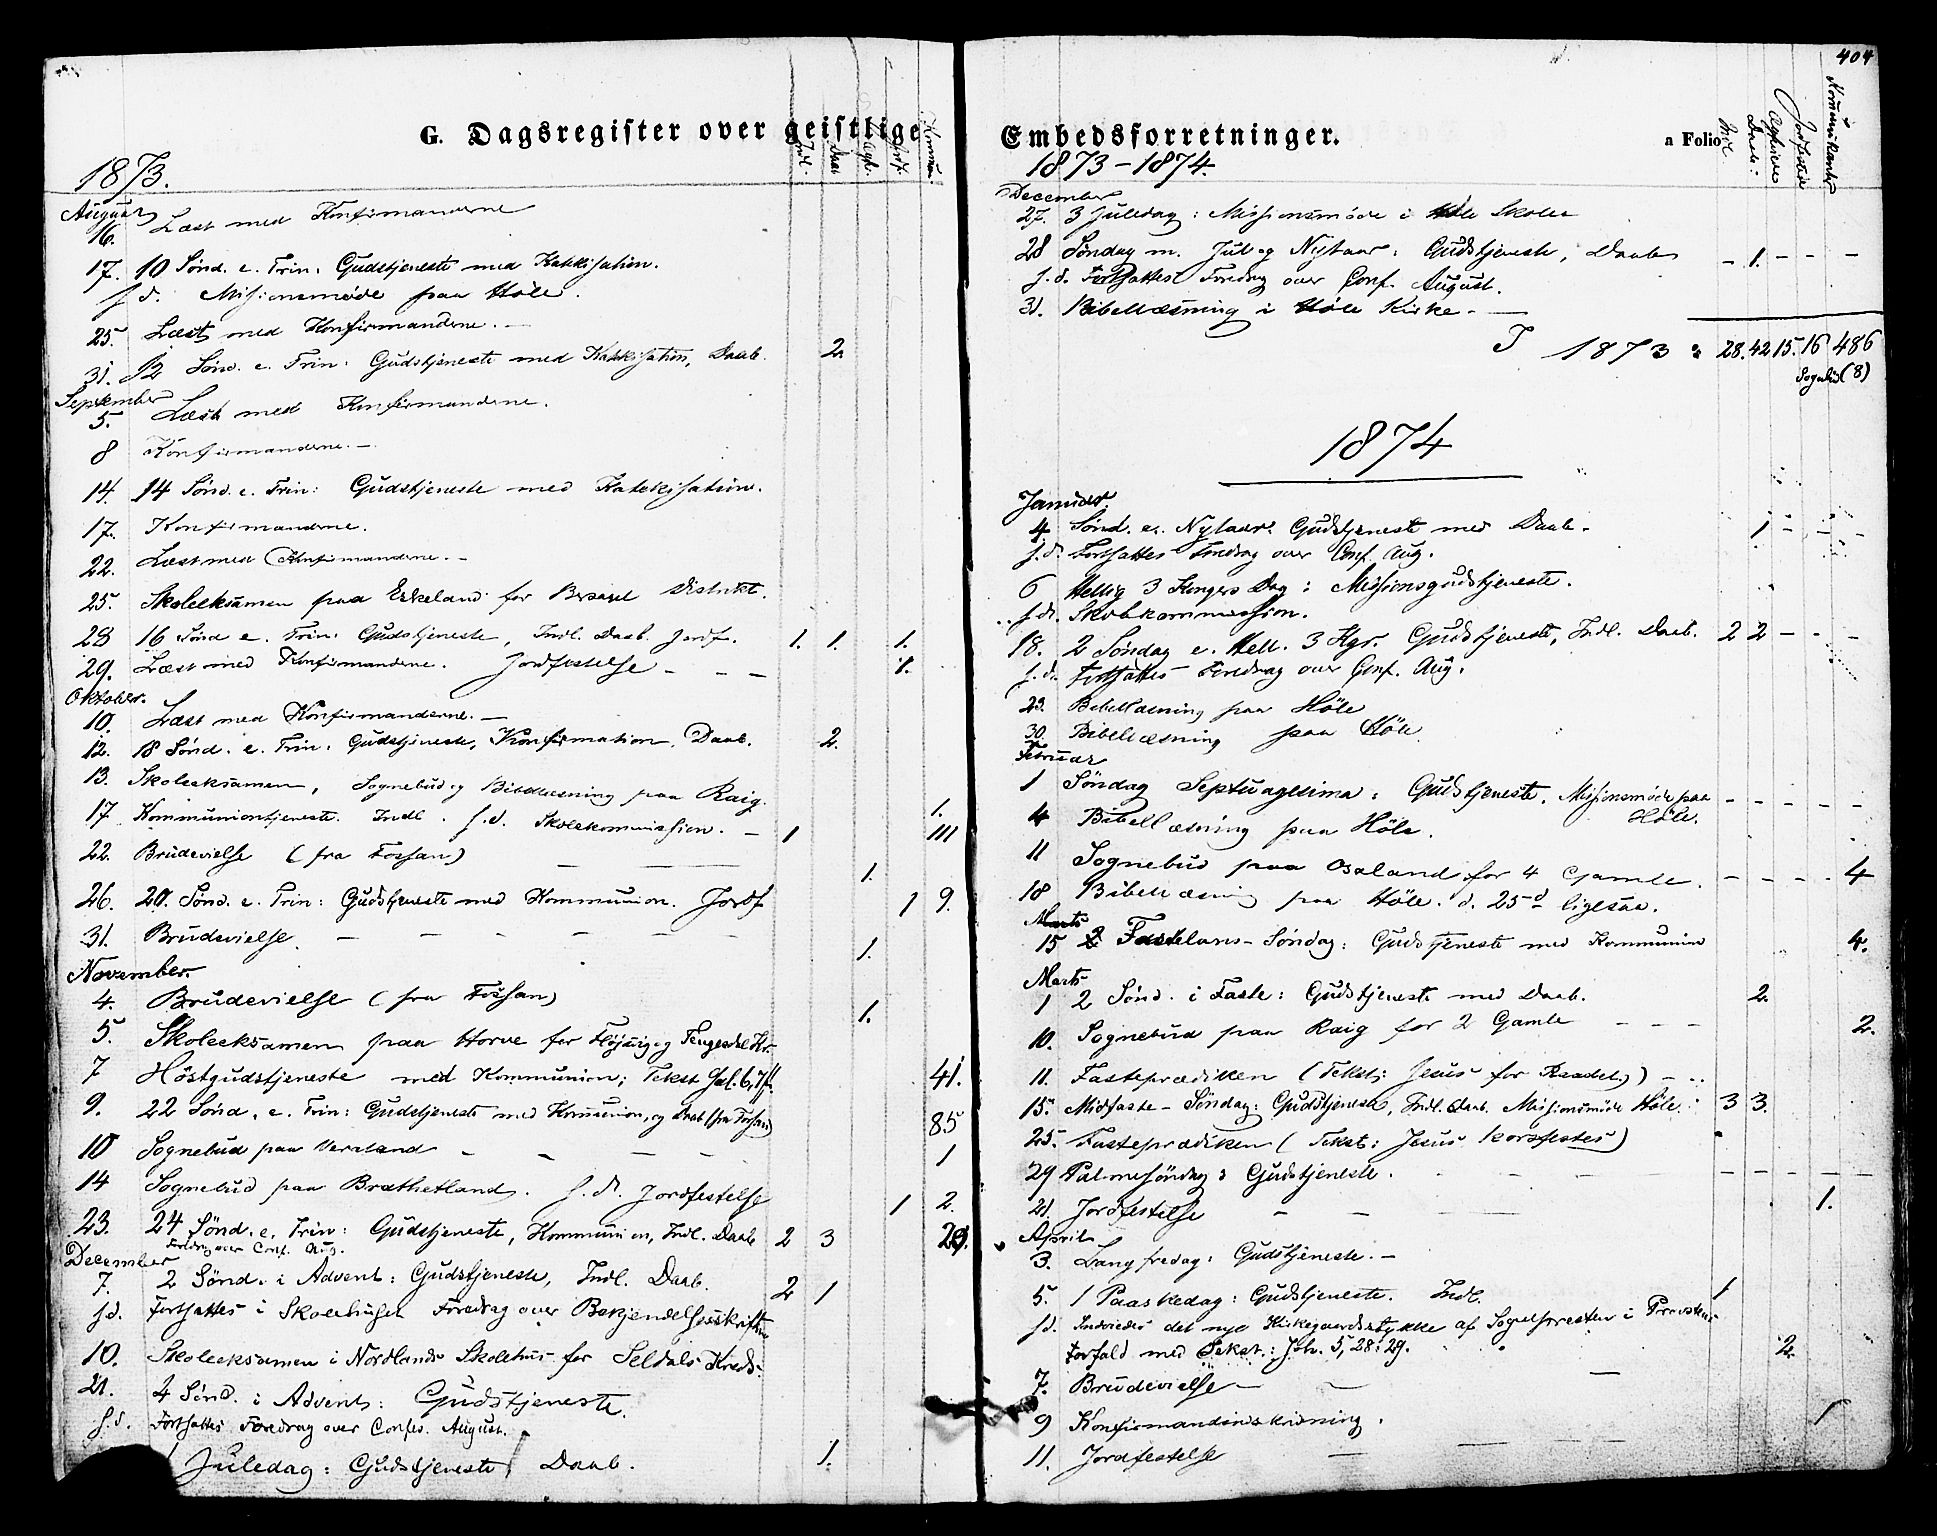 G. Dagsregister over geistlige
1873.
Indl. Daab Jordf. Kommun.
August
16. Læst med Konfirmanderne
17. 10 Sønd. e. Trin: Gudstjeneste med Katekisation.
s. d. Missionsmøde paa Höle.
25. Læst med Konfirmanderne. —
31. 12 Sönd. e. Trin: Gudstjeneste med Katekisation, Daab. 2.
September
5. Læst med Konfirmanderne.
8 Konfirmanderne. —
14. 14 Sönd. e. Trin: Gudstjeneste med Katekisation.
17. Konfirmanderne.
22. Læst med Konfirmanderne. —
25. Skoleeksamen paa Eskeland for Bersavel Distrikt.
28 16 Sönd e. Trin: Gudstjeneste, Indl. Daab. Jordf. 1. 1. 1.
29. Læst med Konfirmanderne. Jordfestelse - - — 1.
Oktober.
10. Læst med Konfirmanderne. —
12. 18 Sönd. e. Trin: Gudstjeneste, Konfirmation, Daab. 2.
13. Skoleeksamen, Sognebud og Bibellæsning paa Raig. 1.
17 Kommuniontjeneste. Indl. s. d. Skolekommission. — 1 111
22. Brudevielse (fra Fossan) — — 1.
26. 20. Sönd. e. Trin: Gudstjeneste med Kommunion. Jordf 1 9.
31. Brudevielse. — — — — — 1.
November.
4. Brudevielse (fra Fossan) 1.
5. Skoleeksamen paa Horve for Höjnig og Tengesdal Kr.
7 Höstgudstjeneste med Kommunion; Tekst Gal. 6,7ff. 41.
9. 22 Sönd. e. Trin: Gudstjeneste med Kommunion, og Daab (fra Fossan) 85
10 Sognebud paa - - - - 1
14 Sognebud paa Brathetland. s. d. Jordfestelse 1 2.
23. 24 Sönd. e. Trin: Gudstjeneste, Kommunion, Indl. Daab 2 3 29.
Foredrag over Conf. Aug.
December
7. 2 Sönd. i Advent: Gudstjeneste, Indl. Daab. 2 1
s d. Fortsattes i Skolehuset Foredrag over Bekjendelsesskrifterne
10. Skoleeksamen i Nordlands Skolehus for Seldals Kreds.
21. 4 Sönd. i Advent: Gudstjeneste.
s. d. Fortsattes Foredrag over Confes. August.
1 Juledag: Gudstjeneste, Daab. 1.
404
Embedsforretninger.
a Folio
1873-1874.
Indl Daab: Jordfestede Kommunikanter
December
27. 3 Juledag: Missionsmøde i Höle Skole
28 Söndag m. Jul og Nytaar: Gudstjeneste, Daab - 1. - - -
s. d. Fortsattes Foredrag over Conf. August.
31. Bibellæsning i Höle Kirke. —
I 1873: 28. 42 15. 16 486
Sognebud (8)
1874
Januar.
4 Sönd. e. Nytaar: Gudstjeneste med Daab. - 1 - - -
s. d. Fortsattes Foredrag over Conf. Aug.
6 Hellig 3 Kongers Dag: Missionsgudstjeneste.
s. d. Skolekommission.
18. 2 Söndag e. Hell. 3 Kgr. Gudstjeneste, Indl. Daab. 2 2 - - -
s. d. Fortsattes Foredrag over Conf. Aug.
23. Bibellæsning paa Höle
30. Bibellæsning paa Höle
Februar
1 Söndag Septuagesima: Gudstjeneste. Missionsmøde paa Höle. - - - - -
4 Bibellæsning paa Höle.
11 Sognebud paa Osaland for 4 Gamle. - - - - 4
18 Bibellæsning paa Höle. d. 25d ligesaa.
Marts
15 Fastelavns-Söndag: Gudstjeneste med Kommunion 4.
Marts
1 2 Sönd. i Faste: Gudstjeneste med Daab. 2.
10. Sognebud paa Raig for 2 Gamle - - - 2.
11. Fasteprædiken (Tekst; Jesus for Raadet.) - ..
15. Midfaste-Söndag: Gudstjeneste, Indl. Daab. Missionsmöde Höle. 3 3.
25. Fasteprædiken (Tekst: Jesus korsfestes)
29 Palmesöndag: Gudstjeneste. - - - - -
21. Jordfestelse - - — 1.
April
3. Langfredag: Gudstjeneste. —
5. 1 Paaskedag: Gudstjeneste. Indl. 1
s d. Indviedes det nye Kirkegaardsstykke af Sognepresten i Provstens
Forfald med Tekst: Joh. 5, 28: 29.
7. Brudevielse — — — 2.
9 Konfirmandindskrivning.
11. Jordfestelse — — — 1